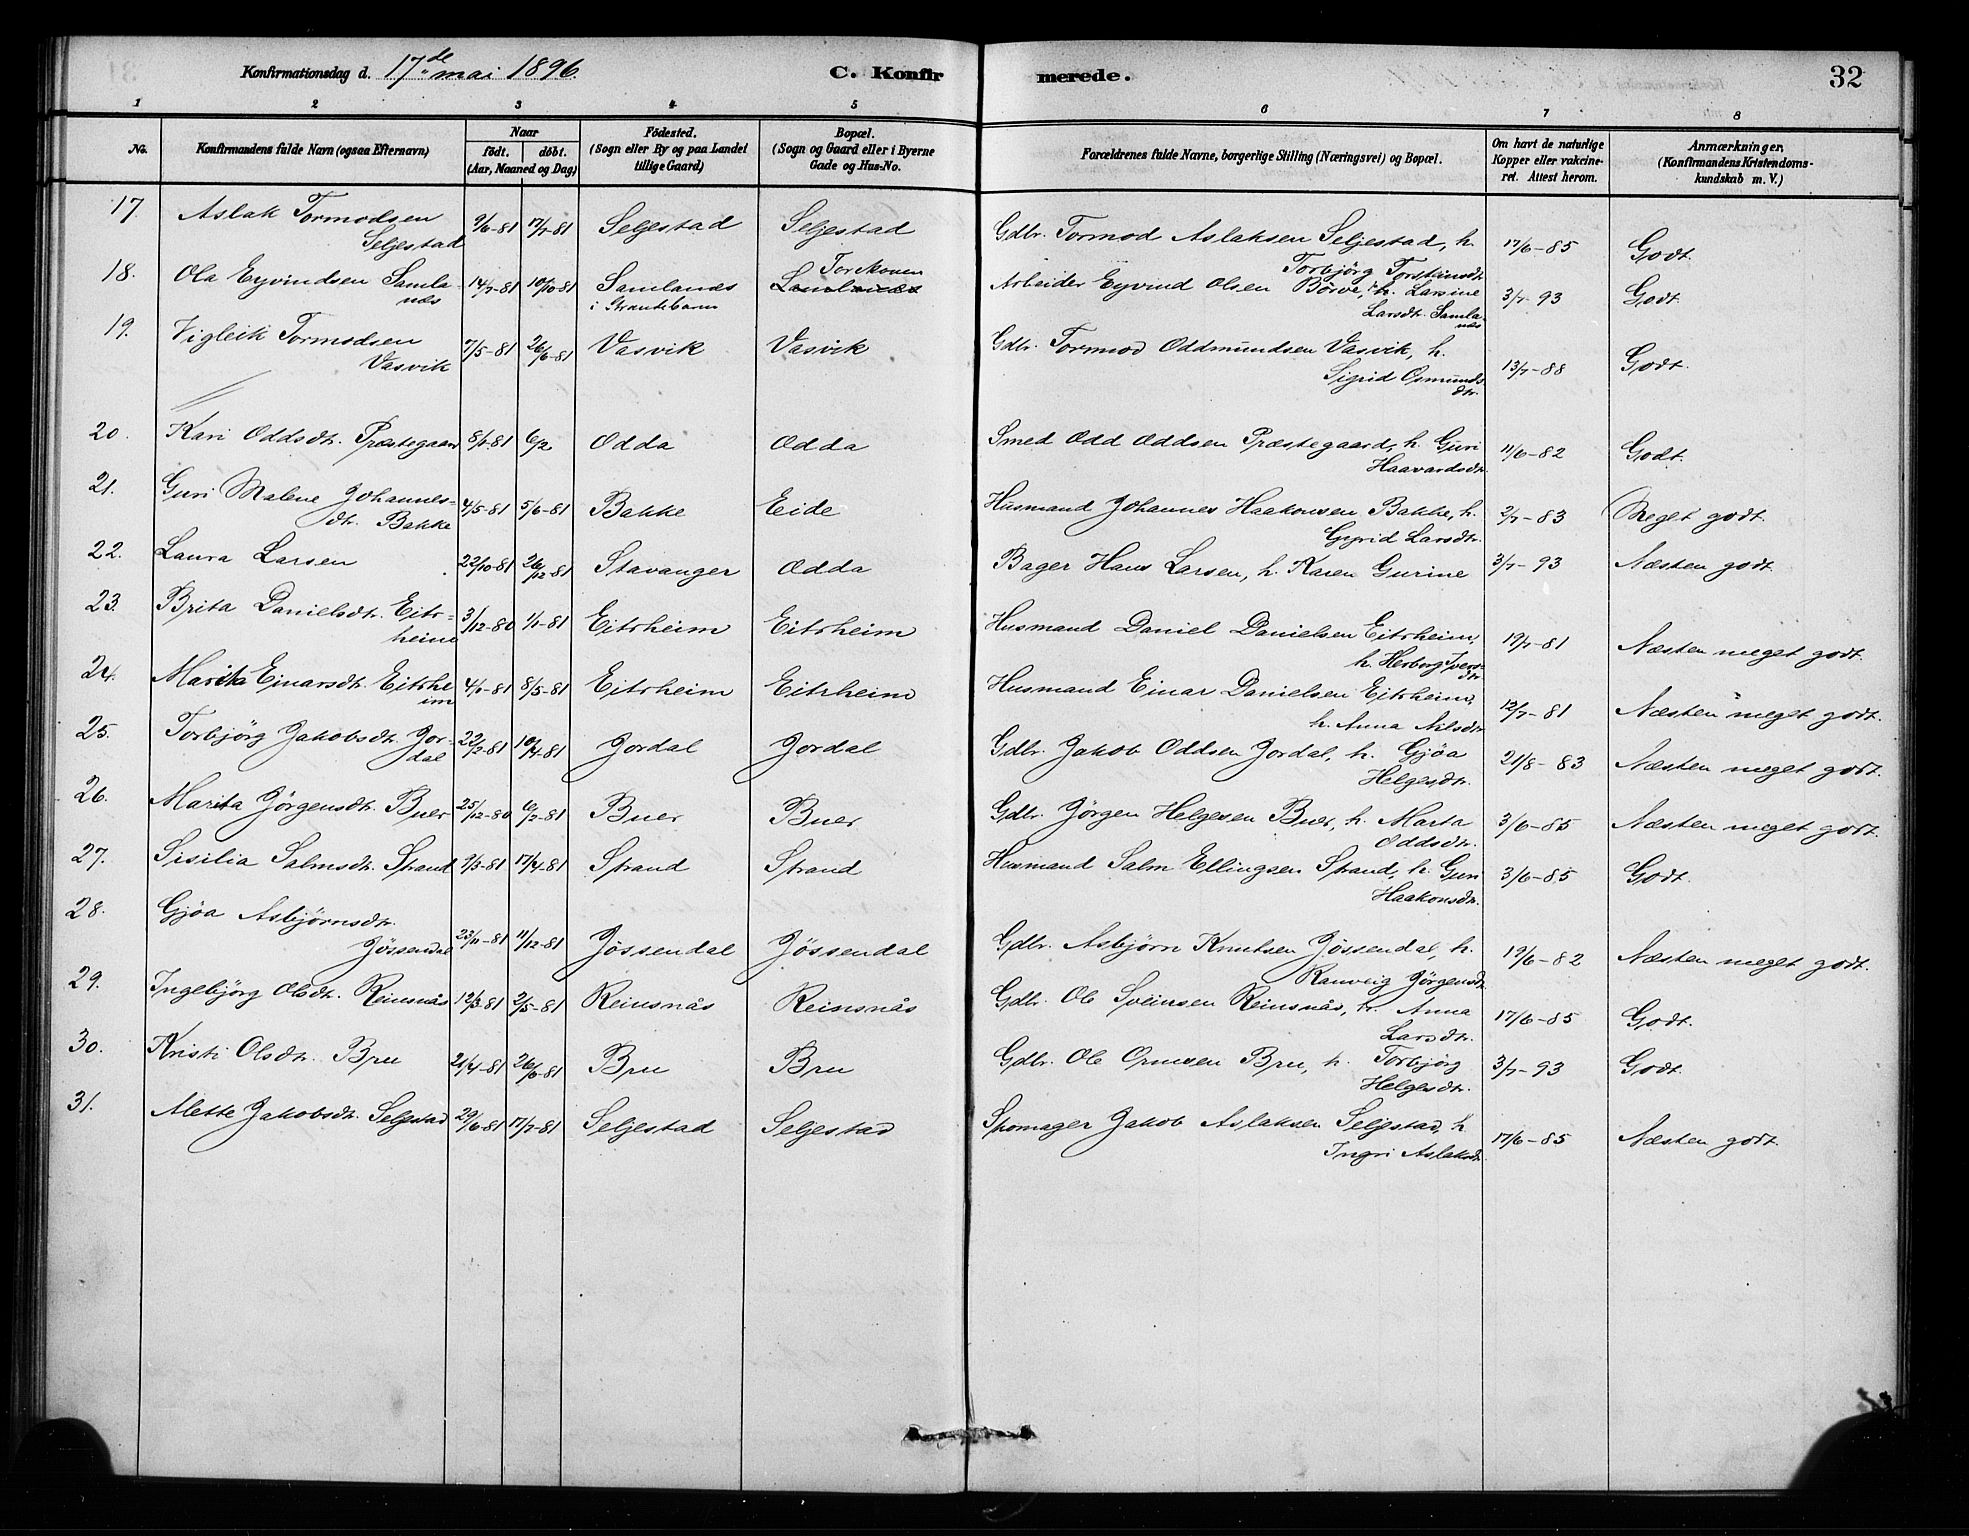 Konfirmationsdag d. 17de mai 1896. C. Konfirmerede. 32
1 2 3 4 5 6 7 8
No. Konfirmandens fulde Navn (ogsaa Efternavn) Naar födt. döbt. (Aar, Maaned og Dag) Födested. (Sogn eller By og paa Landet tillige Gaard) Bopæl. (Sogn og Gaard eller i Byerne Gade og Hus-No. Forældrenes fulde Navne, borgerlige Stilling (Næringsvei) og Bopæl. Om havt de naturlige Kopper eller vakcineret. Attest herom. Anmærkninger, (Konfirmandens Kristendomskundskab m. V.)
17. Aslak Tormodsen Seljestad 9/6-81 17/7-81 Seljestad Seljestad Gdbr. Tormod Aslaksen Seljestad, h. Torbjörg Torsteinsdt. 17/6-85 Godt.
18. Ola Eyvindsen Samlanæs 14/7-81 10/10-81 Samlanæs i Strandebarm Samlanæs Arbeider Eyvind Olsen Börve, h. Larsine Larsdt. Samlanæs 3/7-93 Godt
19. Vigleik Tormodsen Vasvik 7/5-81 26/6-81 Vasvik Vasvik Gdbr. Tormod Oddmundsen Vasvik, h. Sigrid Osmundsdtr. 13/7-88 Godt.
20. Kari Oddsdt. Præstegaard 8/1-81 6/2 Odda Odda Smed Odd Oddsen Præstegaard, h. Guri Haavardsdt. 11/6-82 Godt.
21. Guri Malene Johannesdt. Bakke 4/5-81 5/6-81 Bakke Eide Husmand Johannes Haakonsen Bakke, h. Gyrid Larsdtr. 2/7-83 Meget godt.
22. Laura Larsen 22/10-81 26/12-81 Stavanger Odda Bager Hans Larsen, h. Karen Gurine 3/7-93 Næsten godt.
23. Brita Danielsdt. Eitrheim 3/12-80 1/1-81 Eitrheim Eitrheim Husmand Daniel Danielsen Eitrheim, h. Herborg Iversdtr 19/7-81 Næsten meget godt.
24. Marita Einarsdt. Eitrheim 4/1-81 8/5-81 Eitrheim Eitrheim Husmand Einar Danielsen Eitrheim, h. Anna Nilsdtr 12/7-81 Næsten meget godt.
25. Torbjörg Jakobsdt. Jordal 22/2-81 10/4-81 Jordal Jordal Gdbr. Jakob Oddsen Jordal, h. Gjöa Helgesdt. 21/8-83 Næsten meget godt.
26. Marita Jörgensdt. Buer 25/12-80 6/2-81 Buer Buer Gdbr. Jörgen Helgesen Buer, h. Marta Oddsdt. 3/6-85 Næsten meget godt.
27. Sisilia Salmsdt. Strand 9/3-81 17/4-81 Strand Strand Husmand Salm Ellingsen Strand, h. Guri Haakonsdt. 3/6-85 Godt.
28. Gjöa Asbjörnsdt. Jössendal 23/11-81 11/12-81 Jössendal Jössendal Gdbr. Asbjörn Knutsen Jössendal, h. Ranveig Jörgensdt 19/6-82 Næsten meget godt.
29. Ingebjörg Olsdt. Reinsnås 12/3-81 2/5-81 Reinsnås Reinsnås Gdbr. Ole Sveinsen Reinsnås, h. Anna Larsdt. 17/6-85 Godt.
30. Kristi Olsdt. Bru 21/4-81 26/6-81 Bru Bru Gdbr. Ole Ormsen Bru, h. Torbjörg Helgesdt. 3/7-93 Godt.
31. Alette Jakobsdt. Seljestad 29/6-81 17/7-81 Seljestad Seljestad Jakob Aslaksen Seljestad, h. Ingri Aslaksdt. 17/6-85 Næsten godt.